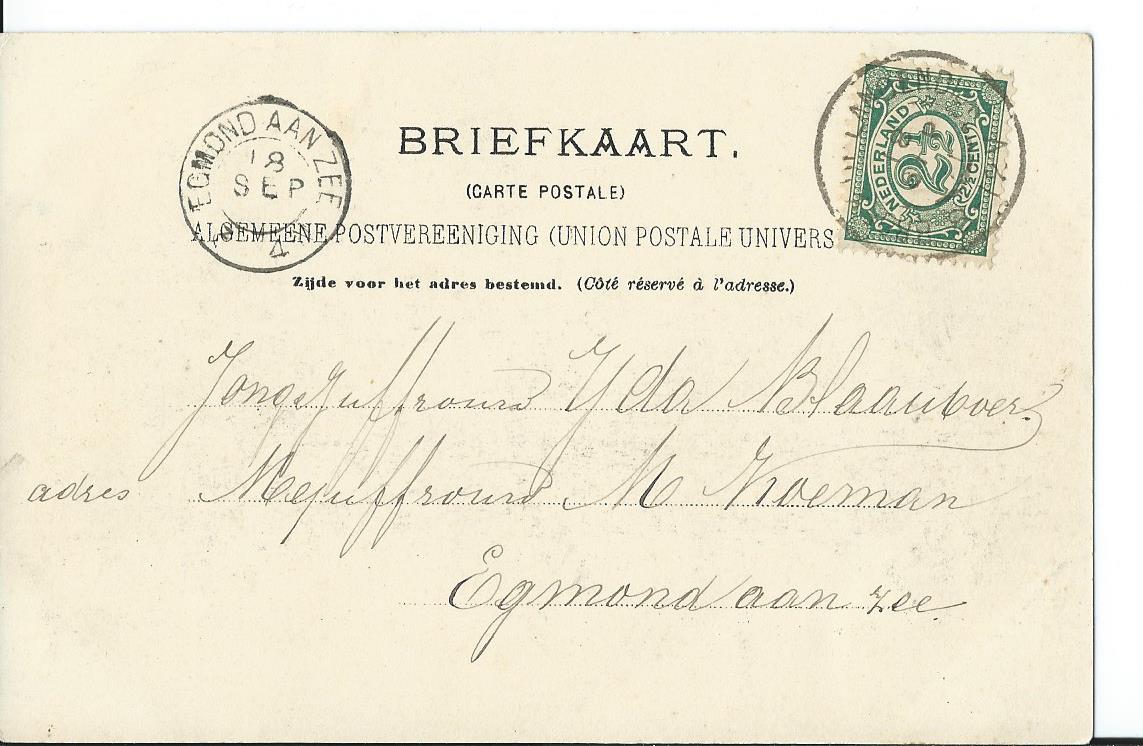 BRIEFKAART.
(CARTE POSTALE)
ALGEMEENE POSTVEREENIGING (UNION POSTALE UNIVERS
Zijde voor het adres bestemd. (Côté réservé à l'adresse.)
EGMOND AAN ZEE
18
SEP
4
NEDERLAND
2½
2½ CENT
Jongejuffrouw Yda Blaauboer.
adres Mejuffrouw M Koeman
Egmond aan zee.